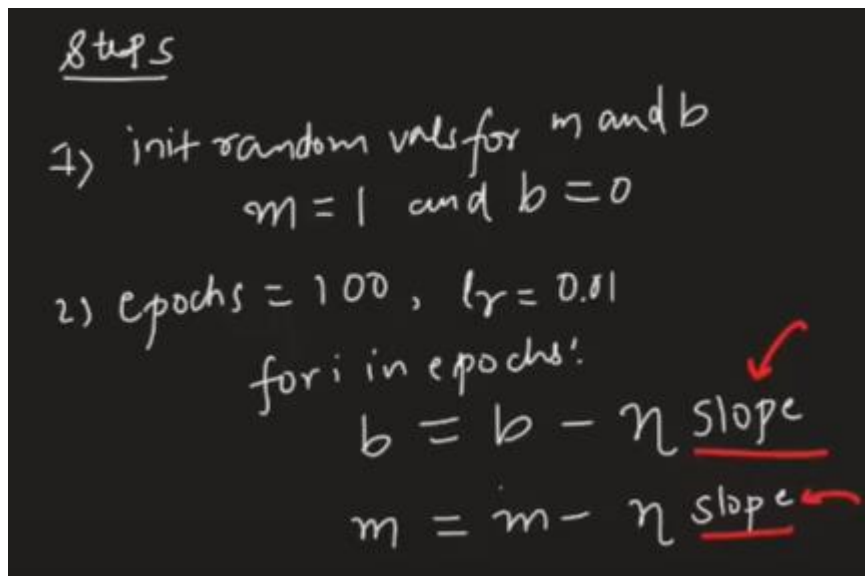 Steps
1) init random vals for m and b
m = 1 and b = 0
2) epochs = 100, lr = 0.01
for i in epochs:
b = b - η slope
m = m - η slope